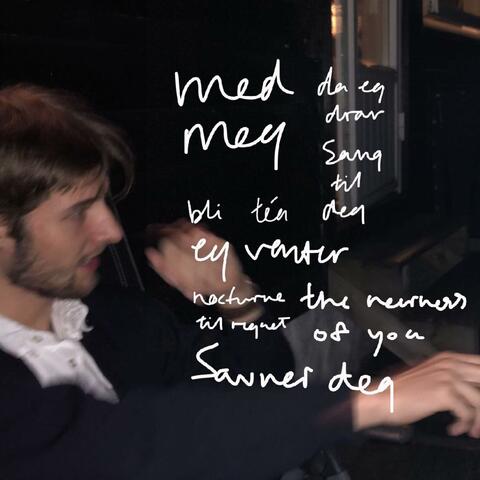 med
meg
da eg
drar
Sang
til
deg
bli
eg venter
nocturne
til regnet
the nearness
of you
Savner deg